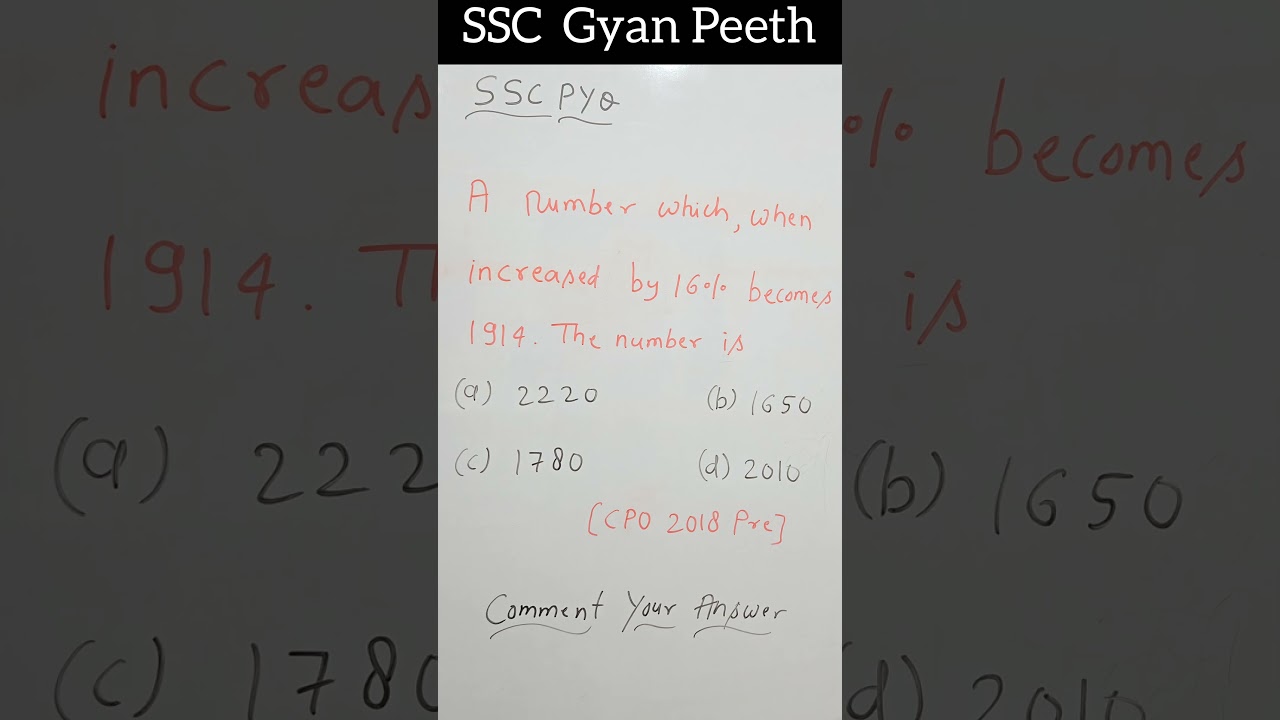 SSC Gyan Peeth
SSC PYQ
A number which, when
increased by 16% becomes
1914. The number is
(a) 2220 (b) 1650
(c) 1780 (d) 2010
[CPO 2018 Pre]
Comment Your Answer